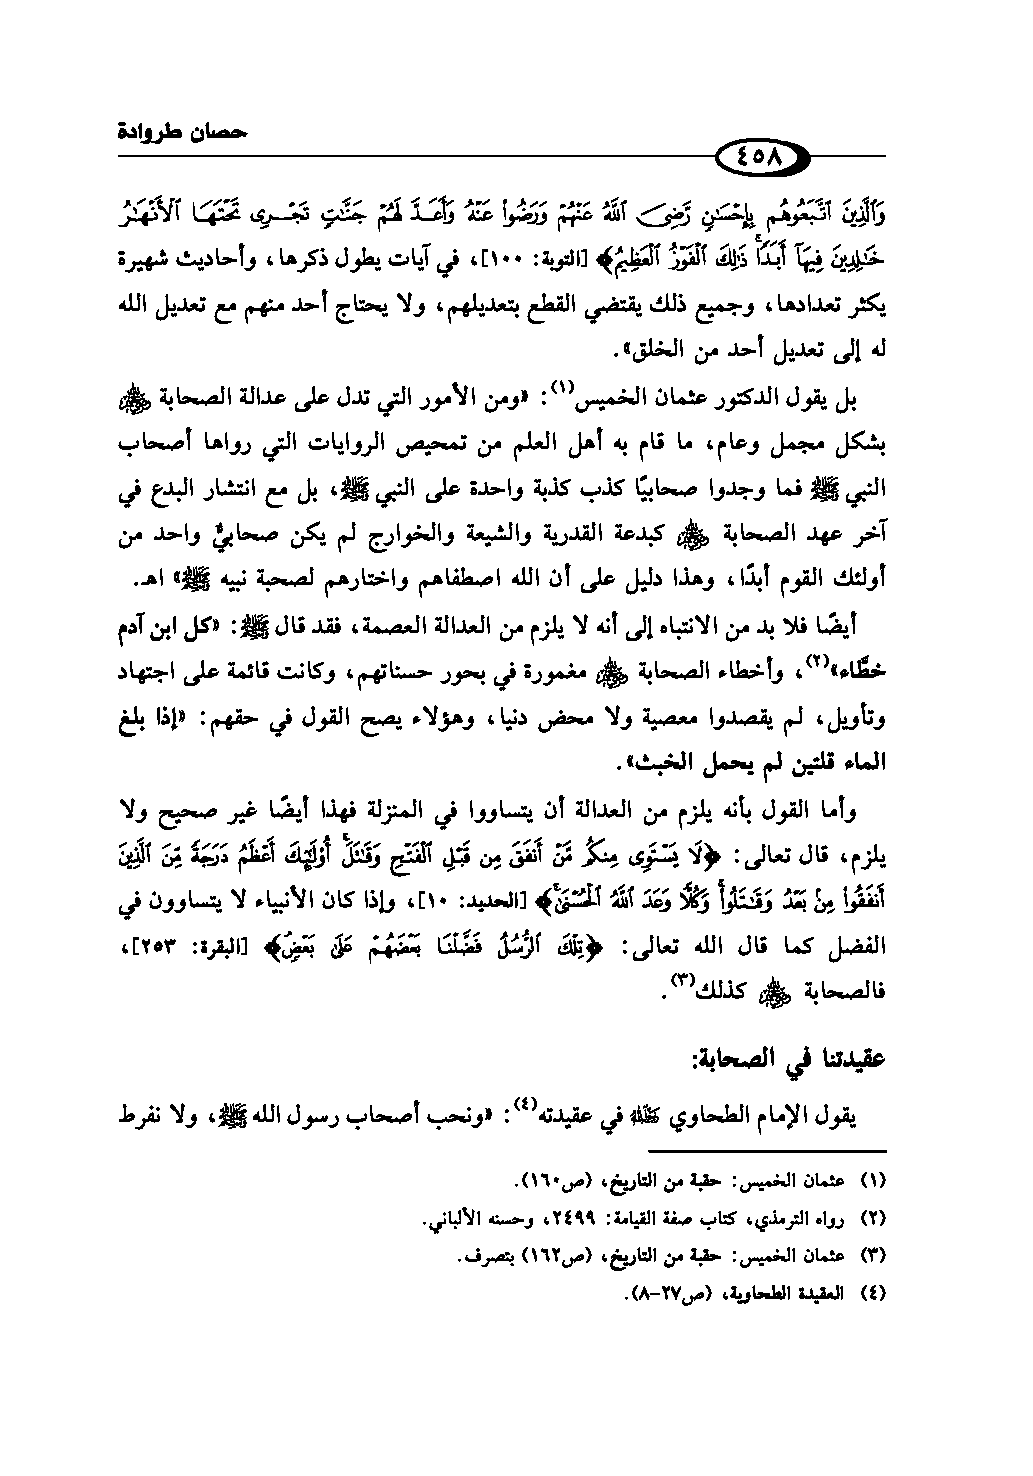 حصان طروادة
٤٥٨
وَٱلَّذِينَ ٱتَّبَعُوهُم بِإِحْسَٰنٍ رَّضِىَ ٱللَّهُ عَنْهُمْ وَرَضُوا۟ عَنْهُ وَأَعَدَّ لَهُمْ جَنَّٰتٍ تَجْرِى تَحْتَهَا ٱلْأَنْهَٰرُ
خَٰلِدِينَ فِيهَآ أَبَدًۭا ۚ ذَٰلِكَ ٱلْفَوْزُ ٱلْعَظِيمُ﴾ [التوبة: ١٠٠]، في آيات يطول ذكرها، وأحاديث شهيرة
يكثر تعدادها، وجميع ذلك يقتضي القطع بتعديلهم، ولا يحتاج أحد منهم مع تعديل الله
له إلى تعديل أحد من الخلق».
بل يقول الدكتور عثمان الخميس(١): «ومن الأمور التي تدل على عدالة الصحابة رضي الله عنهم
بشكل مجمل وعام، ما قام به أهل العلم من تمحيص الروايات التي رواها أصحاب
النبي ﷺ فما وجدوا صحابيًا كذب كذبة واحدة على النبي ﷺ، بل مع انتشار البدع في
آخر عهد الصحابة رضي الله عنهم كبدعة القدرية والشيعة والخوارج لم يكن صحابيٌ واحد من
أولئك القوم أبدًا، وهذا دليل على أن الله اصطفاهم واختارهم لصحبة نبيه ﷺ» اهـ.
أيضًا فلا بد من الانتباه إلى أنه لا يلزم من العدالة العصمة، فقد قال ﷺ: «كل ابن آدم
خطَّاء»(٢)، وأخطاء الصحابة رضي الله عنهم مغمورة في بحور حسناتهم، وكانت قائمة على اجتهاد
وتأويل، لم يقصدوا معصية ولا محض دنيا، وهؤلاء يصح القول في حقهم: «إذا بلغ
الماء قلتين لم يحمل الخبث».
وأما القول بأنه يلزم من العدالة أن يتساووا في المنزلة فهذا أيضًا غير صحيح ولا
يلزم، قال تعالى: ﴿لَا يَسْتَوِى مِنكُم مَّنْ أَنفَقَ مِن قَبْلِ ٱلْفَتْحِ وَقَٰتَلَ ۚ أُو۟لَٰٓئِكَ أَعْظَمُ دَرَجَةً مِّنَ ٱلَّذِينَ
أَنفَقُوا۟ مِنۢ بَعْدُ وَقَٰتَلُوا۟ ۚ وَكُلًّا وَعَدَ ٱللَّهُ ٱلْحُسْنَىٰ ۚ﴾ [الحديد: ١٠]، وإذا كان الأنبياء لا يتساوون في
الفضل كما قال الله تعالى: ﴿تِلْكَ ٱلرُّسُلُ فَضَّلْنَا بَعْضَهُمْ عَلَىٰ بَعْضٍ﴾ [البقرة: ٢٥٣]،
فالصحابة رضي الله عنهم كذلك(٣).
عقيدتنا في الصحابة:
يقول الإمام الطحاوي رحمه الله في عقيدته(٤): «ونحب أصحاب رسول الله ﷺ، ولا نفرط
(١) عثمان الخميس: حقبة من التاريخ، (ص١٦٠).
(٢) رواه الترمذي، كتاب صفة القيامة: ٢٤٩٩، وحسنه الألباني.
(٣) عثمان الخميس: حقبة من التاريخ، (ص١٦٢) بتصرف.
(٤) العقيدة الطحاوية، (ص٢٧-٨).